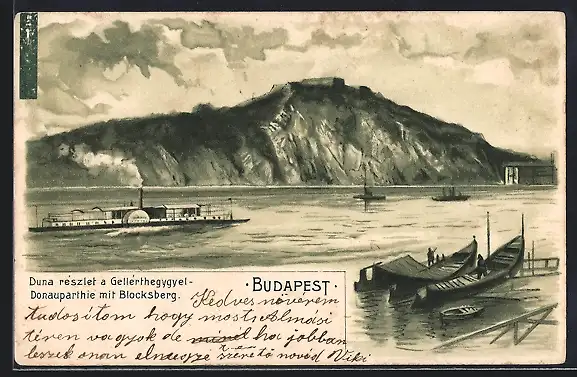 Duna részlet a Gellérthegygyel-
Donauparthie mit Blocksberg.
· BUDAPEST ·
Kedves növérem
tudositom hogy most Almási
téren vagyok de minél ha jobban
leszek onan elmegyé
szerető novéd Viki